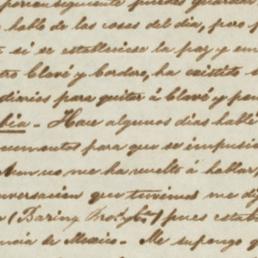 porconsiguiente puedes guardar
hable de las cosas del dia, pero p
si se estableciese la paz y em
tre Clavé y Cordero, ha existido
divios para quitar á Clavé y pon
bia. Hace algunos dias hablé
cumentos para que se impusie
no me ha vuelto á hablar
nversacion que tuvimos me di
(Baring Bro. y Ca.) pues estab
noia de Mexico. Me supongo q